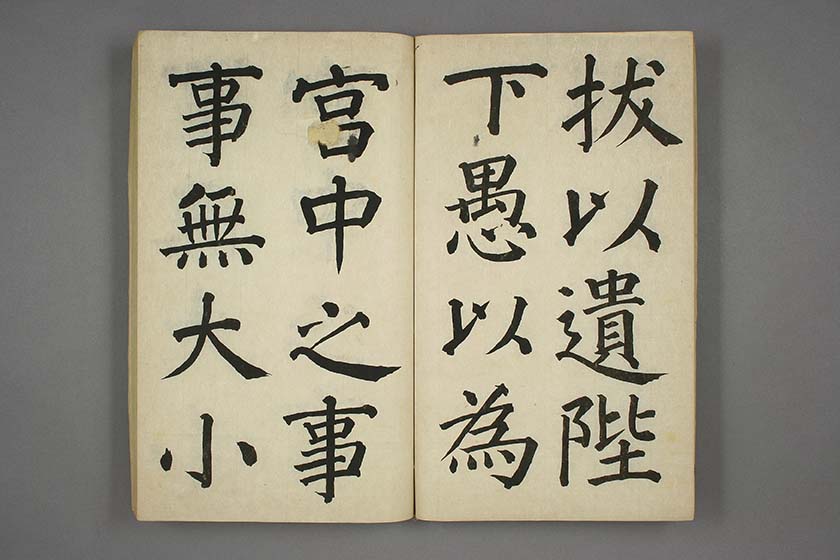 拔以遺陛
下愚以為
宮中之事
事無大小